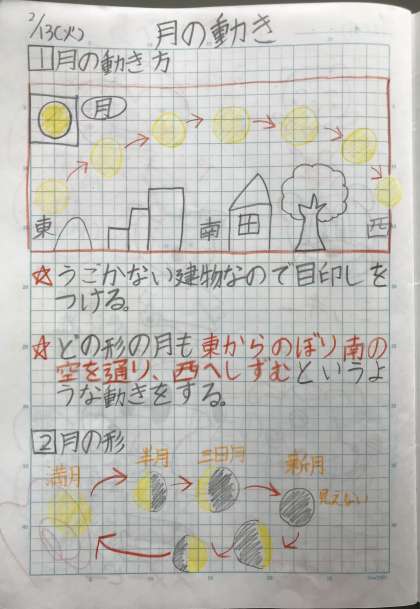 2/13(火) 月の動き
1 月の動き方
月
東 南 西
☆ うごかない建物なので目印しを
つける。
☆ どの形の月も東からのぼり南の
空を通り、西へしずむというよ
うな動きをする。
2 月の形
満月 半月 三日月 新月
見えない